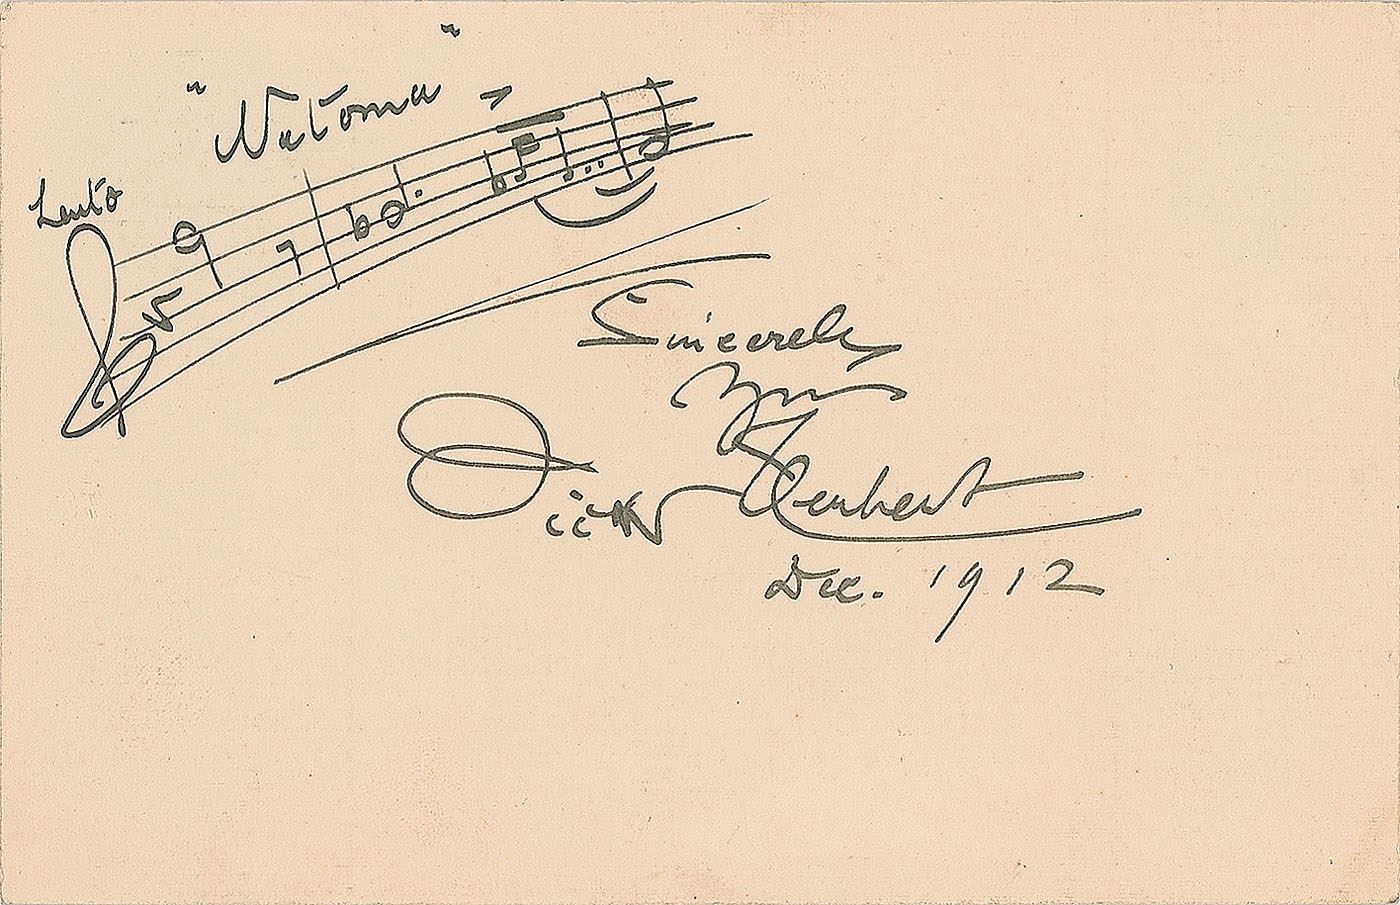 "Natoma"
Lento
Sincerely
Yours
Victor Herbert
Dec. 1912